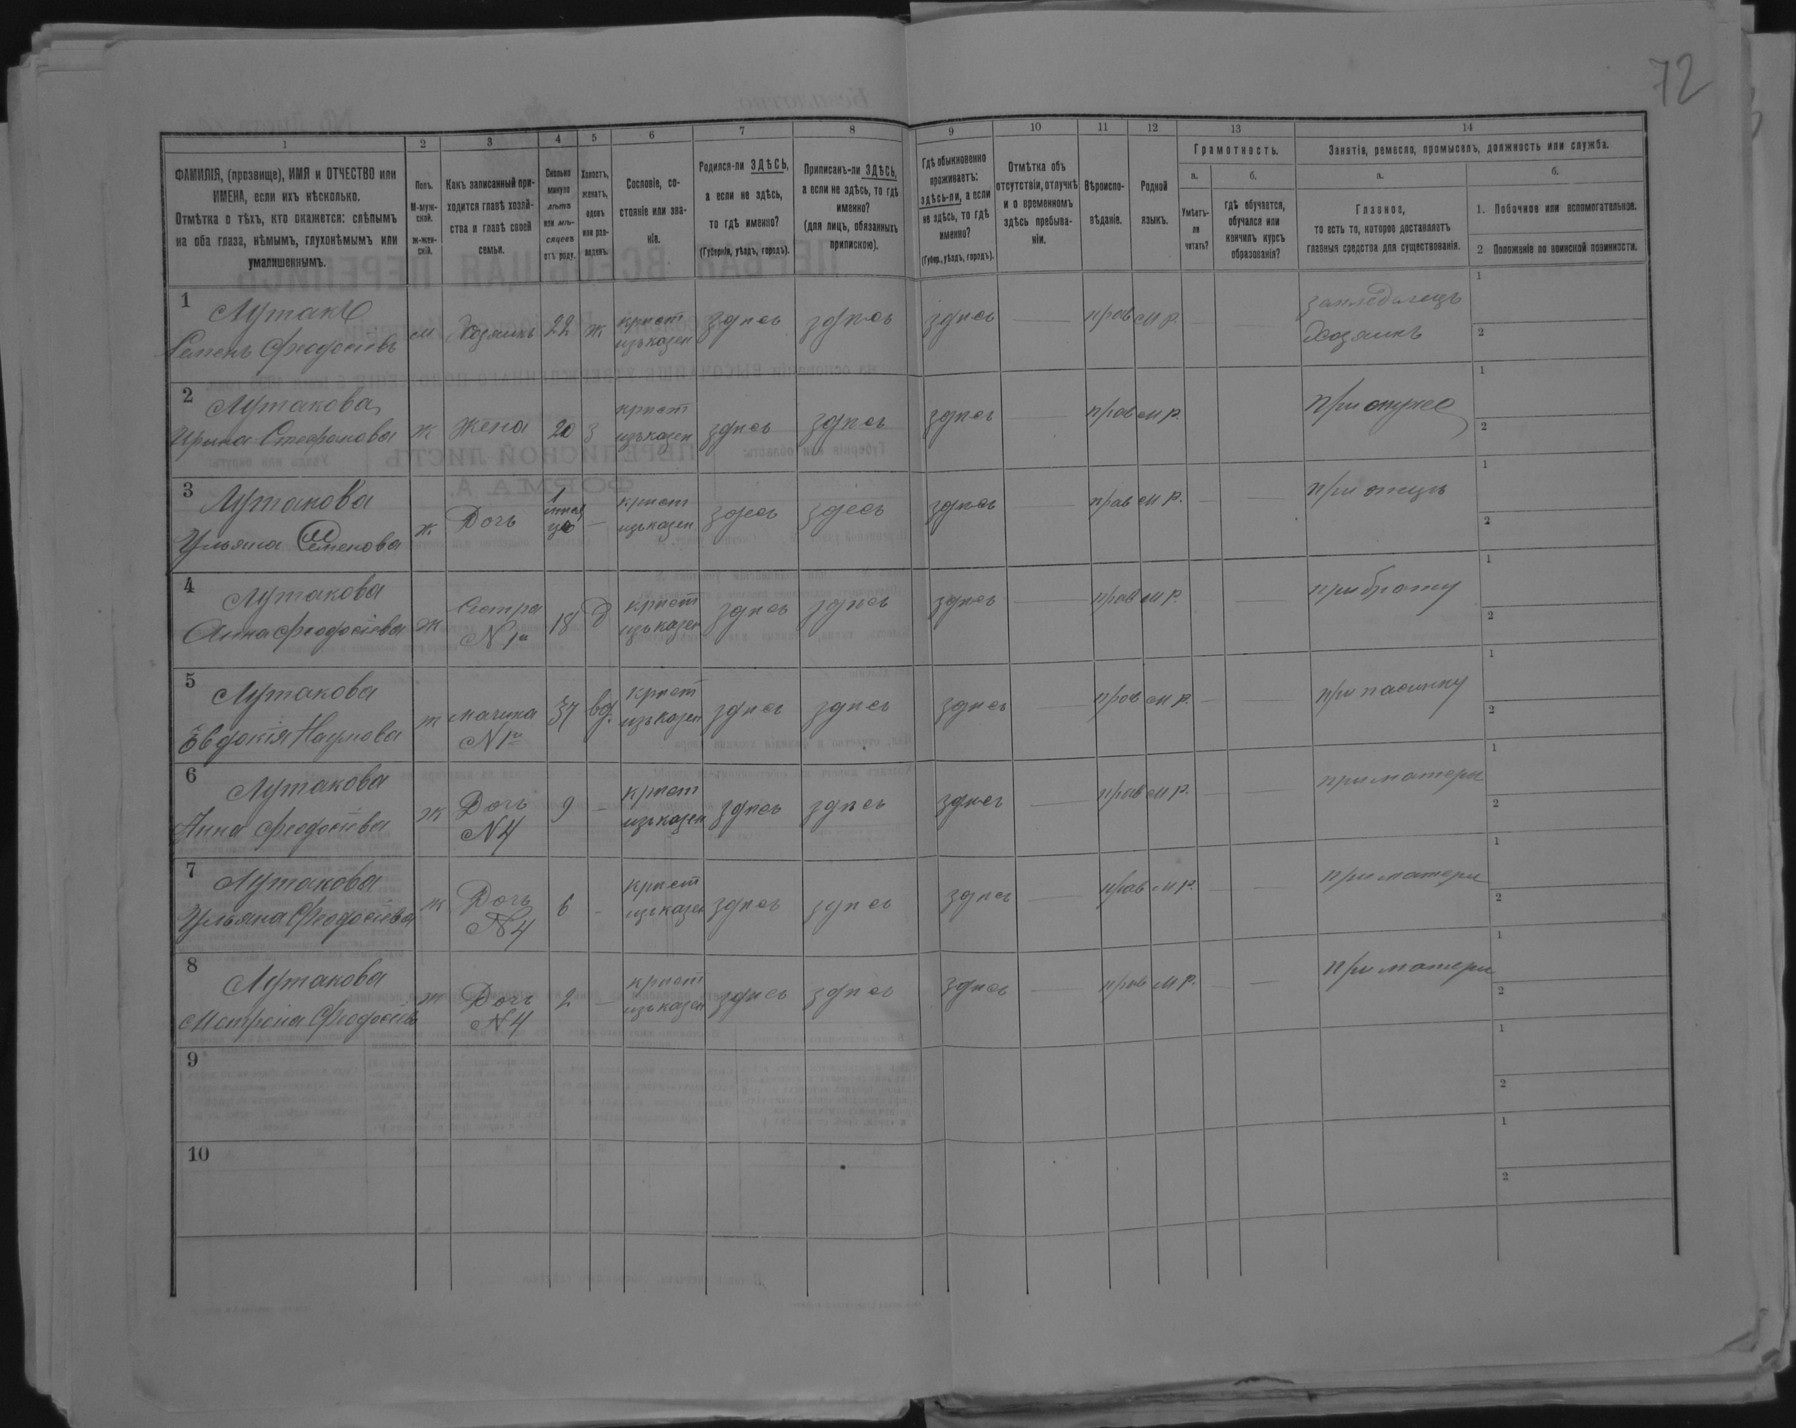 72
1
2
3
4
5
6
7
8
9
10
11
12
13
14
ФАМИЛІЯ, (прозвище), ИМЯ и ОТЧЕСТВО или
ИМЕНА, если ихъ нѣсколько.
Отмѣтка о тѣхъ, кто окажется: слѣпымъ
на оба глаза, нѣмымъ, глухонѣмымъ или
умалишеннымъ.
Полъ.
М-муж-
ской.
ж-жен-
скій.
Какъ записанный при-
ходится главѣ хозяй-
ства и главѣ своей
семьи.
Сколько
минуло
лѣтъ
или мѣ-
сяцевъ
отъ роду.
Холостъ,
женатъ,
вдовъ
или раз-
веденъ.
Сословіе, со-
стояніе или зва-
ніе.
Родился-ли ЗДѢСЬ,
а если не здѣсь,
то гдѣ именно?
(Губернія, уѣздъ, городъ).
Приписанъ-ли ЗДѢСЬ,
а если не здѣсь, то гдѣ
именно?
(для лицъ, обязанныхъ
припискою).
Гдѣ обыкновенно
проживаетъ:
здѣсь-ли, а если
не здѣсь, то гдѣ
именно?
(Губер., уѣздъ, городъ).
Отмѣтка объ
отсутствіи, отлучкѣ
и о временномъ
здѣсь пребыва-
ніи.
Вѣроиспо-
вѣданіе.
Родной
языкъ.
Грамотность.
а.
Умѣетъ-
ли
читать?
б.
Гдѣ обучается,
обучался или
кончилъ курсъ
образованія?
Занятія, ремесло, промыселъ, должность или служба.
а.
Главное,
то есть то, которое доставляетъ
главныя средства для существованія.
б.
1. Побочное или вспомогательное.
2 Положеніе по воинской повинности.
1 Лутакъ
Семенъ Феодосіевъ м Хозяинъ 22 ж крѣст изъ казен здѣсь здѣсь здѣсь — прав м.р. — — земледѣлецъ хозяинъ 1 2
2 Лутакова
Ирина Стефанова ж жена 20 з крѣст изъ казен здѣсь здѣсь здѣсь — прав м.р. при мужѣ 1 2
3 Лутакова
Ульяна Семенова ж Дочь 1 — крѣст изъ казен здесь здесь здѣсь — прав м.р. — — при отцѣ 1 2
4 Лутакова
Анна Феодосіева ж Сестра N 1й 18 д крѣст изъ казен здѣсь здѣсь здѣсь — прав м.р. — — при брату 1 2
5 Лутакова
Евдокія Наумова ж мачиха N 1й 37 вд. крѣст изъ казен здѣсь здѣсь здѣсь — прав м.р. — — при пасинку 1 2
6 Лутакова
Анна Феодосіева ж Дочь N 4 9 — крѣст изъ казен здѣсь здѣсь здѣсь — прав м.р. — — при матери 1 2
7 Лутакова
Ульяна Феодосіева ж Дочь N 4 6 — крѣст изъ казен здѣсь здѣсь здѣсь — прав м.р. — — при матери 1 2
8 Лутакова
Мотрона Феодосіев ж Дочь N 4 2 — крѣст изъ казен здѣсь здѣсь здѣсь — прав м.р. — — при матери 1 2
9 1 2
10 1 2